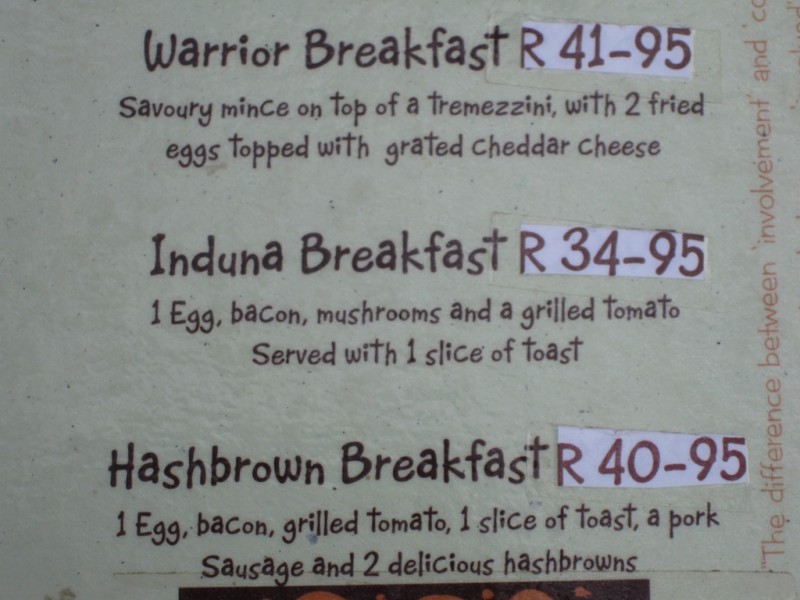 Warrior Breakfast R 41-95
Savoury mince on top of a tremezzini, with 2 fried
eggs topped with grated cheddar cheese
Induna Breakfast R 34-95
1 Egg, bacon, mushrooms and a grilled tomato
Served with 1 slice of toast
Hashbrown Breakfast R 40-95
1 Egg, bacon, grilled tomato, 1 slice of toast, a pork
Sausage and 2 delicious hashbrowns
"The difference between 'involvement' and